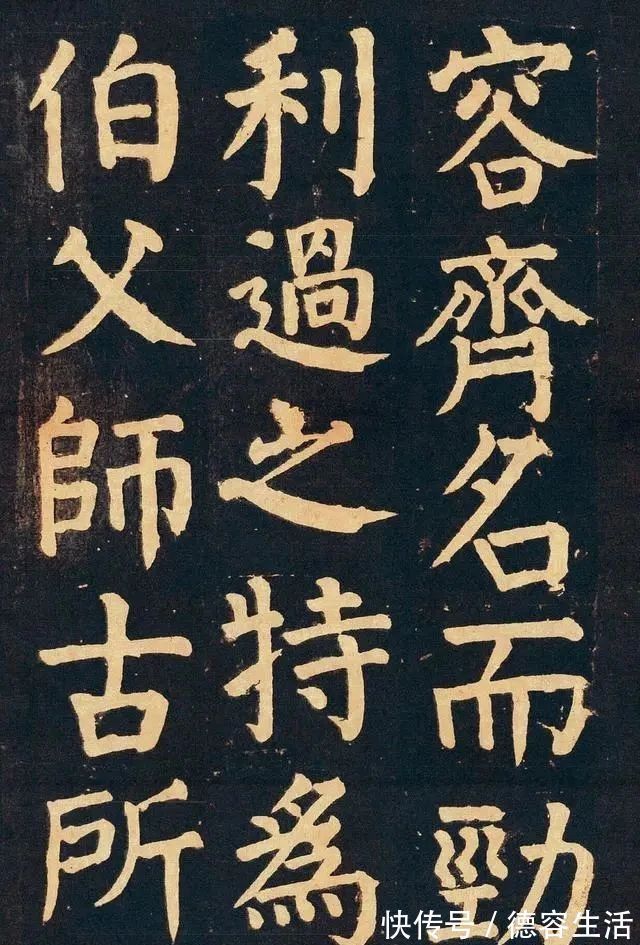 容齊名而勁
利過之特為
伯父師古所
快传号/德容生活